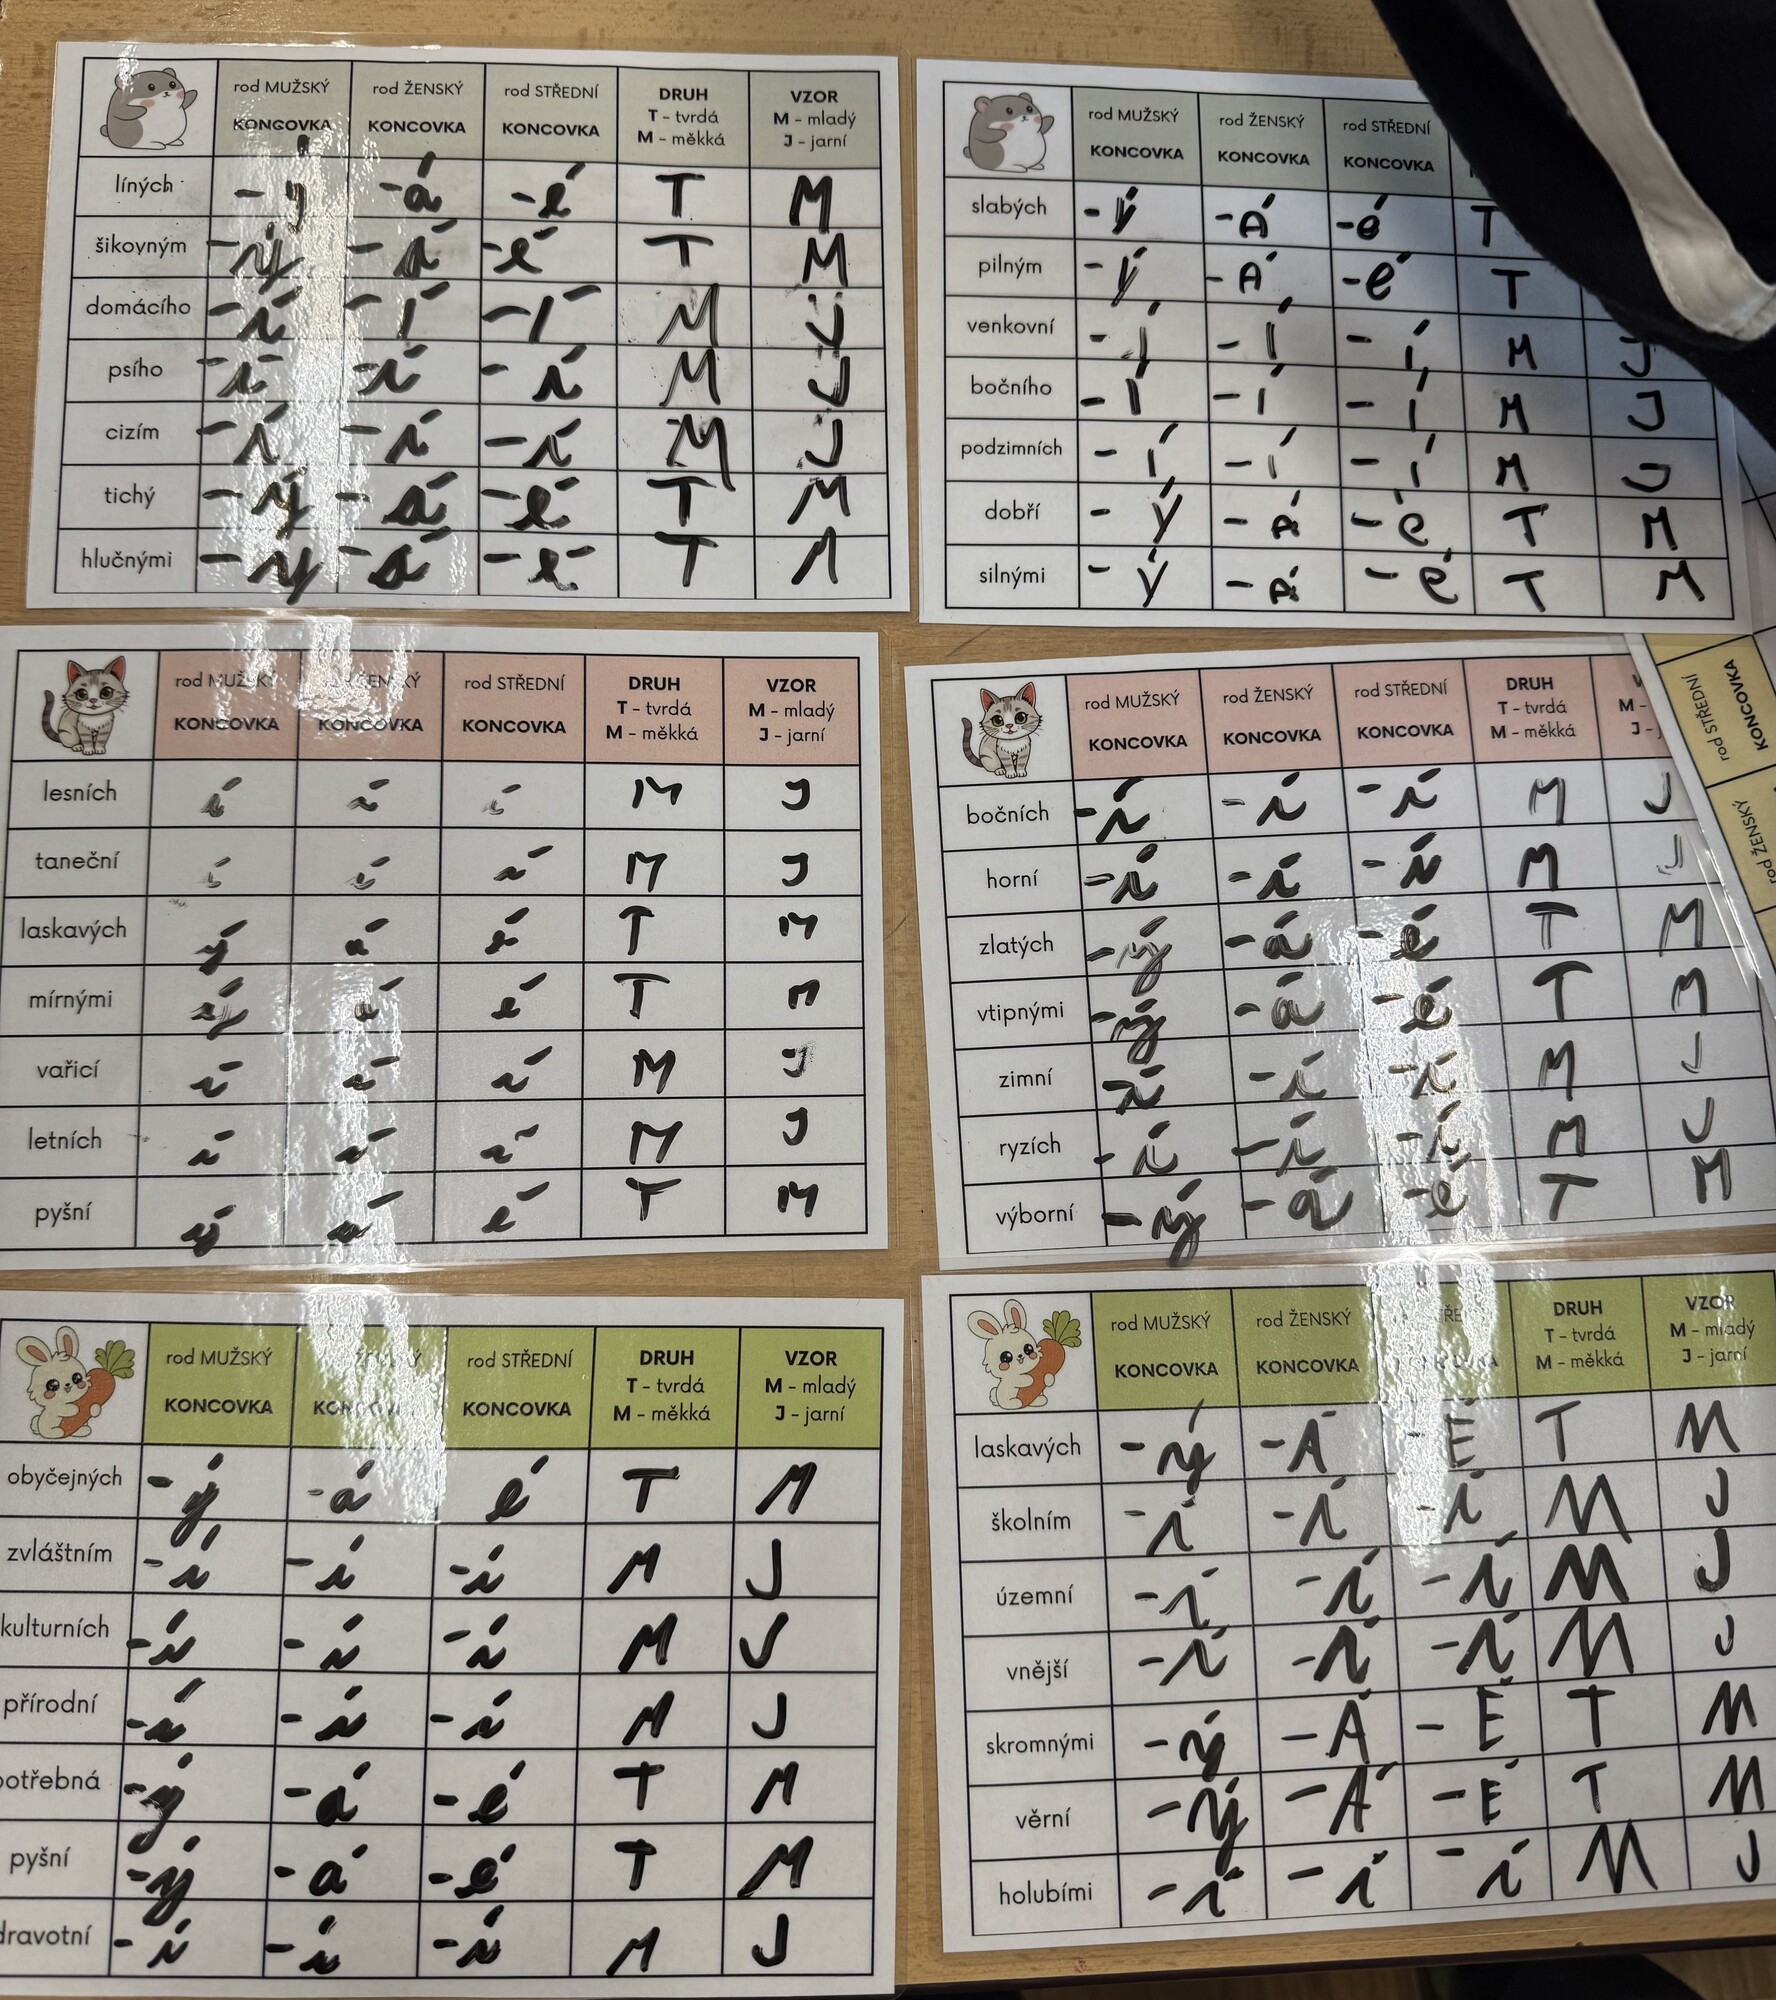 rod MUŽSKÝ KONCOVKA rod ŽENSKÝ KONCOVKA rod STŘEDNÍ KONCOVKA DRUH T - tvrdá M - měkká VZOR M - mladý J - jarní
líných -ý -á -é T M
šikovným -ý -á -é T M
domácího -í -í -í M J
psího -í -í -í M J
cizím -í -í -í M J
tichý -ý -á -é T M
hlučnými -ý -á -é T M
rod MUŽSKÝ KONCOVKA rod ŽENSKÝ KONCOVKA rod STŘEDNÍ KONCOVKA
slabých -ý -Á -é T
pilným -ý -Á -é T
venkovní -í -í -í M J
bočního -í -í -í M J
podzimních -í -í -í M J
dobří -ý -á -é T M
silnými -ý -á -é T M
rod MUŽSKÝ KONCOVKA KONCOVKA rod STŘEDNÍ KONCOVKA DRUH T - tvrdá M - měkká VZOR M - mladý J - jarní
lesních í í í M J
taneční í í í M J
laskavých ý á é T M
mírnými ý á é T M
vařicí í í í M J
letních í í í M J
pyšní ý á é T M
rod MUŽSKÝ KONCOVKA rod ŽENSKÝ KONCOVKA rod STŘEDNÍ KONCOVKA DRUH T - tvrdá M - měkká V M - J -
bočních -í -í -í M J
horní -í -í -í M J
zlatých -ý -á -é T M
vtipnými -ý -á -é T M
zimní -í -í -í M J
ryzích -í -í -í M J
výborní -ý -á -é T M
rod STŘEDNÍ KONCOVKA
rod ŽENSKÝ
rod MUŽSKÝ KONCOVKA rod STŘEDNÍ KONCOVKA DRUH T - tvrdá M - měkká VZOR M - mladý J - jarní
obyčejných -ý -á é T M
zvláštním -í -í -í M J
kulturních -í -í -í M J
přírodní -í -í -í M J
otřebná -ý -á -é T M
pyšní -ý -á -é T M
dravotní -í -í -í M J
rod MUŽSKÝ KONCOVKA rod ŽENSKÝ KONCOVKA DRUH T - tvrdá M - měkká VZOR M - mladý J - jarní
laskavých -ý -Á -É T M
školním -í -í -í M J
územní -í -í -í M J
vnější -í -í -í M J
skromnými -ý -Á -É T M
věrní -ý -Á -É T M
holubími -í -í -í M J